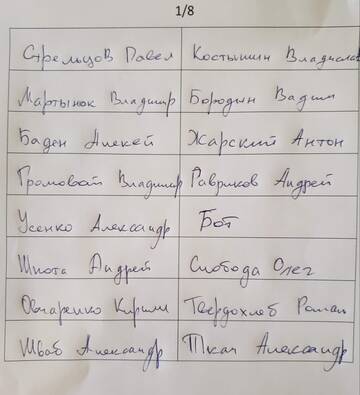 1/8
Стрельцов Павел Костышин Владислав
Мартынюк Владимир Бородын Вадим
Баден Алексей Жарский Антон
Громовой Владимир Гавриков Андрей
Усенко Александр Бот
Шпота Андрей Слобода Олег
Овчаренко Кирилл Твердохлеб Роман
Шваб Александр Ткач Александр